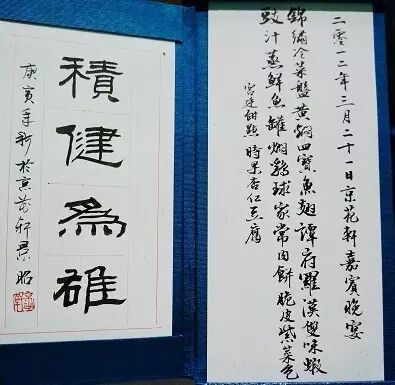 二零一二年三月二十一日京花軒嘉賓晚宴
錦繡冷菜盤黃燜四寶魚翅譚府羅漢雙味蝦
豉汁蒸鮮魚罐燜鷄球家常肉餅脆皮紫菜包
宮廷甜點 時果杏仁豆腐
積健為雄
庚寅年秋於京花軒景昭